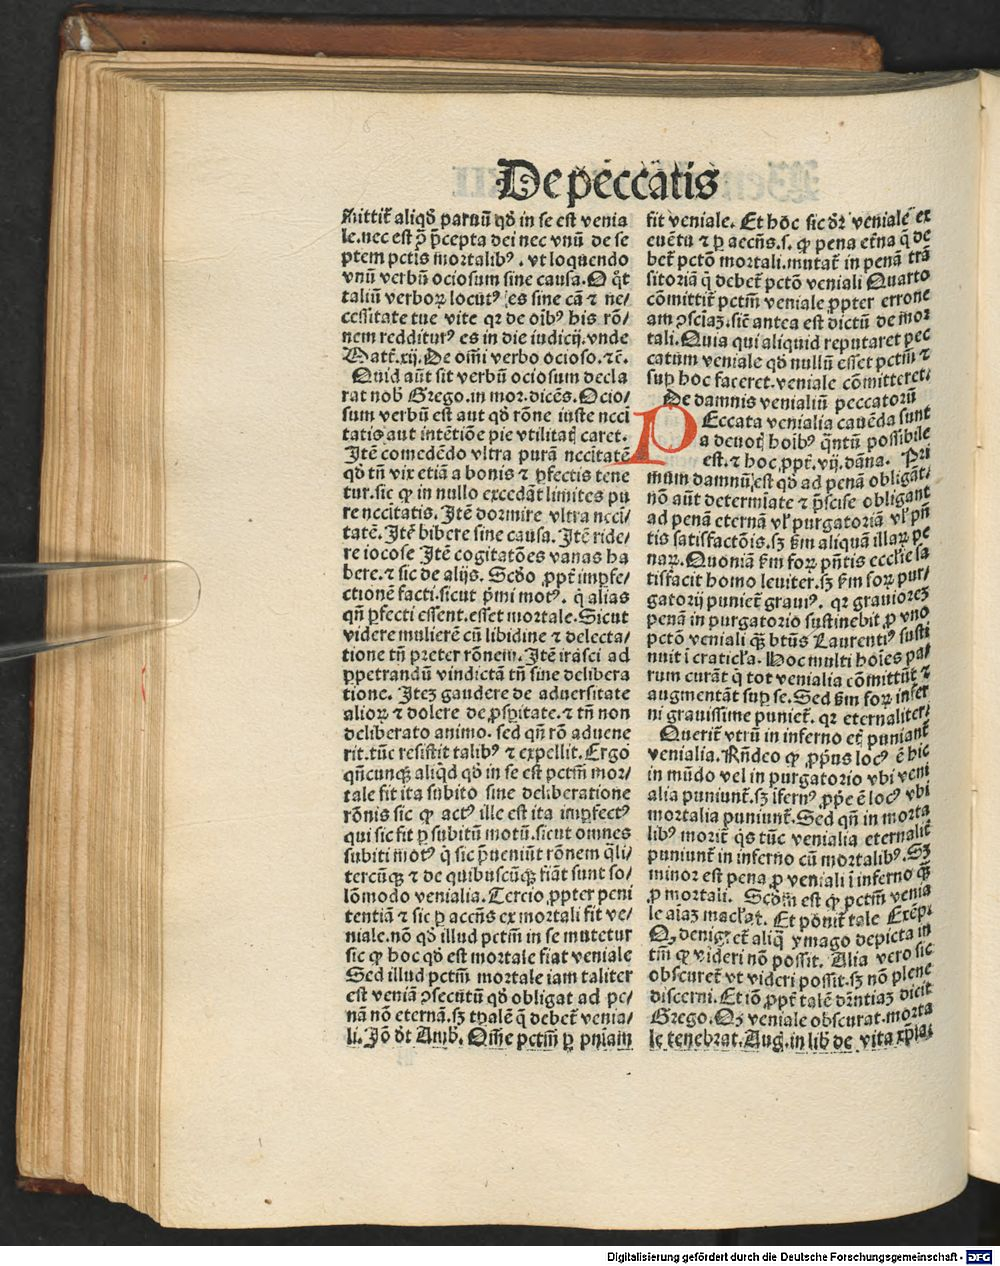 De peccatis
mittit᷑ aliqḋ paruū qḋ in se est venia
le. nec est ꝓ p̄cepta dei nec vnū de se
ptem pctīs mortalibꝰ. vt loquendo
vnū verbū ociosum sine causa. O q̄t
taliū verboꝝ locutꝰ es sine cā ⁊ ne/
cessitate tue vite qꝛ de oībꝰ his rō/
nem redditurꝰ es in die iudicij. vnde
Matt̄. xij. De om̄i verbo ocioso. ⁊c̄.
Quid aūt sit verbū ociosum decla
rat nob̄ Grego. in mor. dicēs. Ocio/
sum verbū est aut qḋ rōne iuste ncci
tatis aut intētiōe pie vtilitatꝭ caret.
Itē comedēdo vltra purā nccitatē
qḋ tn̄ vix etiā a bonis ⁊ ꝑfectis tene
tur. sic ꝙ in nullo excedāt limites pu
re nccitatis. Itē dormire vltra ncci/
tatē. Itē bibere sine causa. Itē ride/
re iocose Itē cogitatōes vanas ha
bere. ⁊ sic de alijs. Scḋo ꝓpt̄ imꝑfe/
ctionē facti. sicut p̄mi motꝰ. q̇ alias
qn̄ ꝑfecti essent. esset mortale. Sicut
videre mulierē cū libidine ⁊ delecta/
tione tn̄ preter rōnem. Itē irasci ad
ꝑpetrandū vindictā tn̄ sine delibera
tione. Iteꝫ gaudere de aduersitate
alioꝝ ⁊ dolere de ꝓsꝑitate. ⁊ tn̄ non
deliberato animo. sed qn̄ rō aduene
rit. tūc resistit talibꝰ ⁊ expellit. Ergo
qn̄cunqꝫ aliq̇d qḋ in se est pctm̄ mor/
tale fit ita subito sine deliberatione
rōnis sic ꝙ actꝰ ille est ita imꝑfectꝰ
qui sic fit ꝑ subitū motū. sicut omnes
subiti motꝰ q̇ sic p̄ueniūt rōnem q̄li/
tercūqꝫ ⁊ de quibuscūqꝫ fiāt sunt so/
lōmodo venialia. Tercio ꝓpter peni
tentiā ⁊ sic ꝑ accn̄s ex mortali fit ve/
niale. nō qḋ illud pctm̄ in se mutetur
sic ꝙ hoc qḋ est mortale fiat veniale
Sed illud pctm̄ mortale iam taliter
est veniā ꝯsecutū qḋ obligat ad pe/
nā nō eternā. sꝫ tꝑalē q̄ debet᷑ venia/
li. Iō dt̄ Amb. Om̄e pctm̄ ꝑ pn̄iam
fit veniale. Et hōc sic dꝛ̄ veniale ex
euētu ⁊ ꝑ accn̄s. s. ꝙ pena et̄na q̄ de
bet᷑ pctō mortali. mutat᷑ in penā trā
sitoriā q̄ debet᷑ pctō veniali Quarto
cōmittit᷑ pctm̄ veniale ꝓpter errone
am ꝯsciāꝫ. sic̄ antea est dictū de mor
tali. Quia qui aliquid reputaret pec
catum veniale qḋ nullū esset pctm̄ ⁊
suꝑ hoc faceret. veniale cōmitteret.
De damnis venialiū peccatorū
PEccata venialia cauēda sunt
a deuotꝭ hoībꝰ q̄ntū possibile
est. ⁊ hoc ꝓpt̄. vij. dāna. Pri
mum damnū est qḋ ad penā obligāt.
nō aūt determīate ⁊ p̄scise obligant
ad penā eternā vl̓ purgatoriā vl̓ pn̄
tis satisfactōis. sꝫ ẜm aliquā illaꝝ pe
naꝝ. Quoniā ẜm foꝝ pn̄tis ecclīe sa
tisfacit homo leuiter. sꝫ ẜm foꝝ pur/
gatorij puniet᷑ grauiꝰ. qꝛ grauiorez
penā in purgatorio sustinebit ꝓ vno
pctō veniali qꝫ̄ btūs Laurentiꝰ susti
nuit ī craticl̓a. Hoc multi hoīes pa/
rum curāt q̇ tot venialia cōmittūt ⁊
augmentāt suꝑ se. Sed ẜm foꝝ infer
ni grauissime puniet᷑. qꝛ eternaliter.
Querit᷑ vtrū in inferno etꝭ puniant᷑
venialia. Rn̄deo ꝙ ꝓpriꝰ locꝰ ē hic
in mūdo vel in purgatorio vbi veni
alia puniunt᷑. sꝫ īfernꝰ ꝓpe ē locꝰ vbi
mortalia puniunt᷑. Sed qn̄ in morta
libꝰ morit᷑ q̇s tūc venialia eternalit̄
puniunt᷑ in inferno cū mortalibꝰ. Sꝫ
minor est pena ꝓ veniali ī inferno qꝫ̄
ꝓ mortali. Scḋm est ꝙ pctm̄ venia
le aīaꝫ macl̓at. Et pōnit᷑ tale Exēp.
Qꝫ denigret᷑ aliq̄ ymago depicta in
tm̄ ꝙ videri nō possit. Alia vero sic
obscuret᷑ vt videri possit. sꝫ nō plene
discerni. Et iō ꝓpt̄ talē drn̄tiaꝫ dicit
Grego. Qꝫ veniale obscurat. morta
le tenebrat. Aug. in lib̄ de vita xp̄ia.
Digitalisierung gefördert durch die Deutsche Forschungsgemeinschaft - DFG